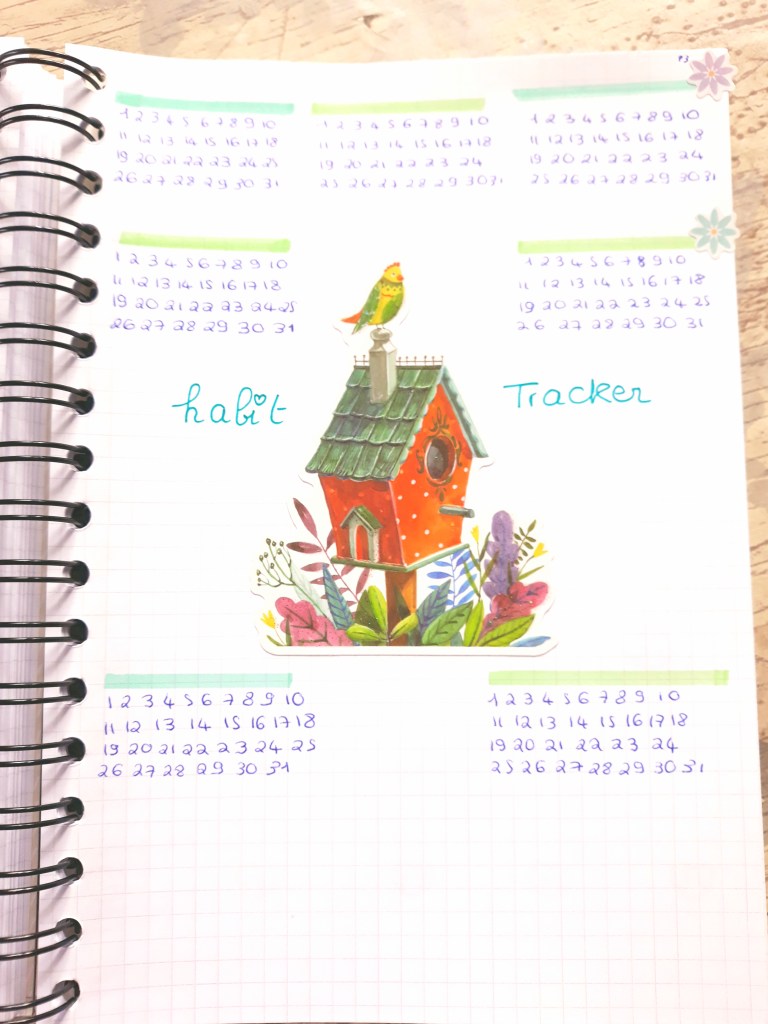 13
1 2 3 4 5 6 7 8 9 10
11 12 13 14 15 16 17 18
19 20 21 22 23 24 25
26 27 28 29 30 31
1 2 3 4 5 6 7 8 9 10
11 12 13 14 15 16 17 18
19 20 21 22 23 24
25 26 27 28 29 30 31
1 2 3 4 5 6 7 8 9 10
11 12 13 14 15 16 17 18
19 20 21 22 23 24
25 26 27 28 29 30 31
1 2 3 4 5 6 7 8 9 10
11 12 13 14 15 16 17 18
19 20 21 22 23 24 25
26 27 28 29 30 31
1 2 3 4 5 6 7 8 9 10
11 12 13 14 15 16 17 18
19 20 21 22 23 24 25
26 27 28 29 30 31
habit Tracker
1 2 3 4 5 6 7 8 9 10
11 12 13 14 15 16 17 18
19 20 21 22 23 24 25
26 27 28 29 30 31
1 2 3 4 5 6 7 8 9 10
11 12 13 14 15 16 17 18
19 20 21 22 23 24
25 26 27 28 29 30 31